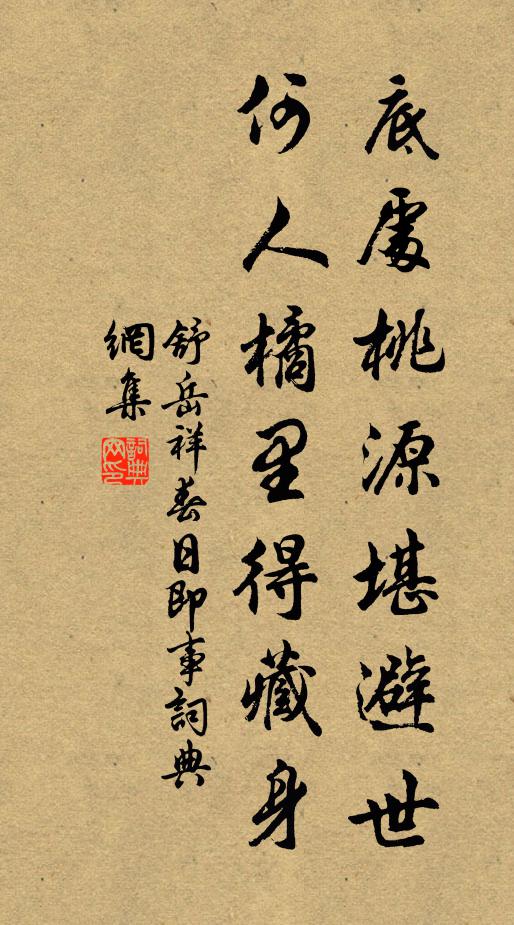 底處桃源堪避世
何人橘里得藏身
舒岳祥春日即事詞典
網集
詞典
网印